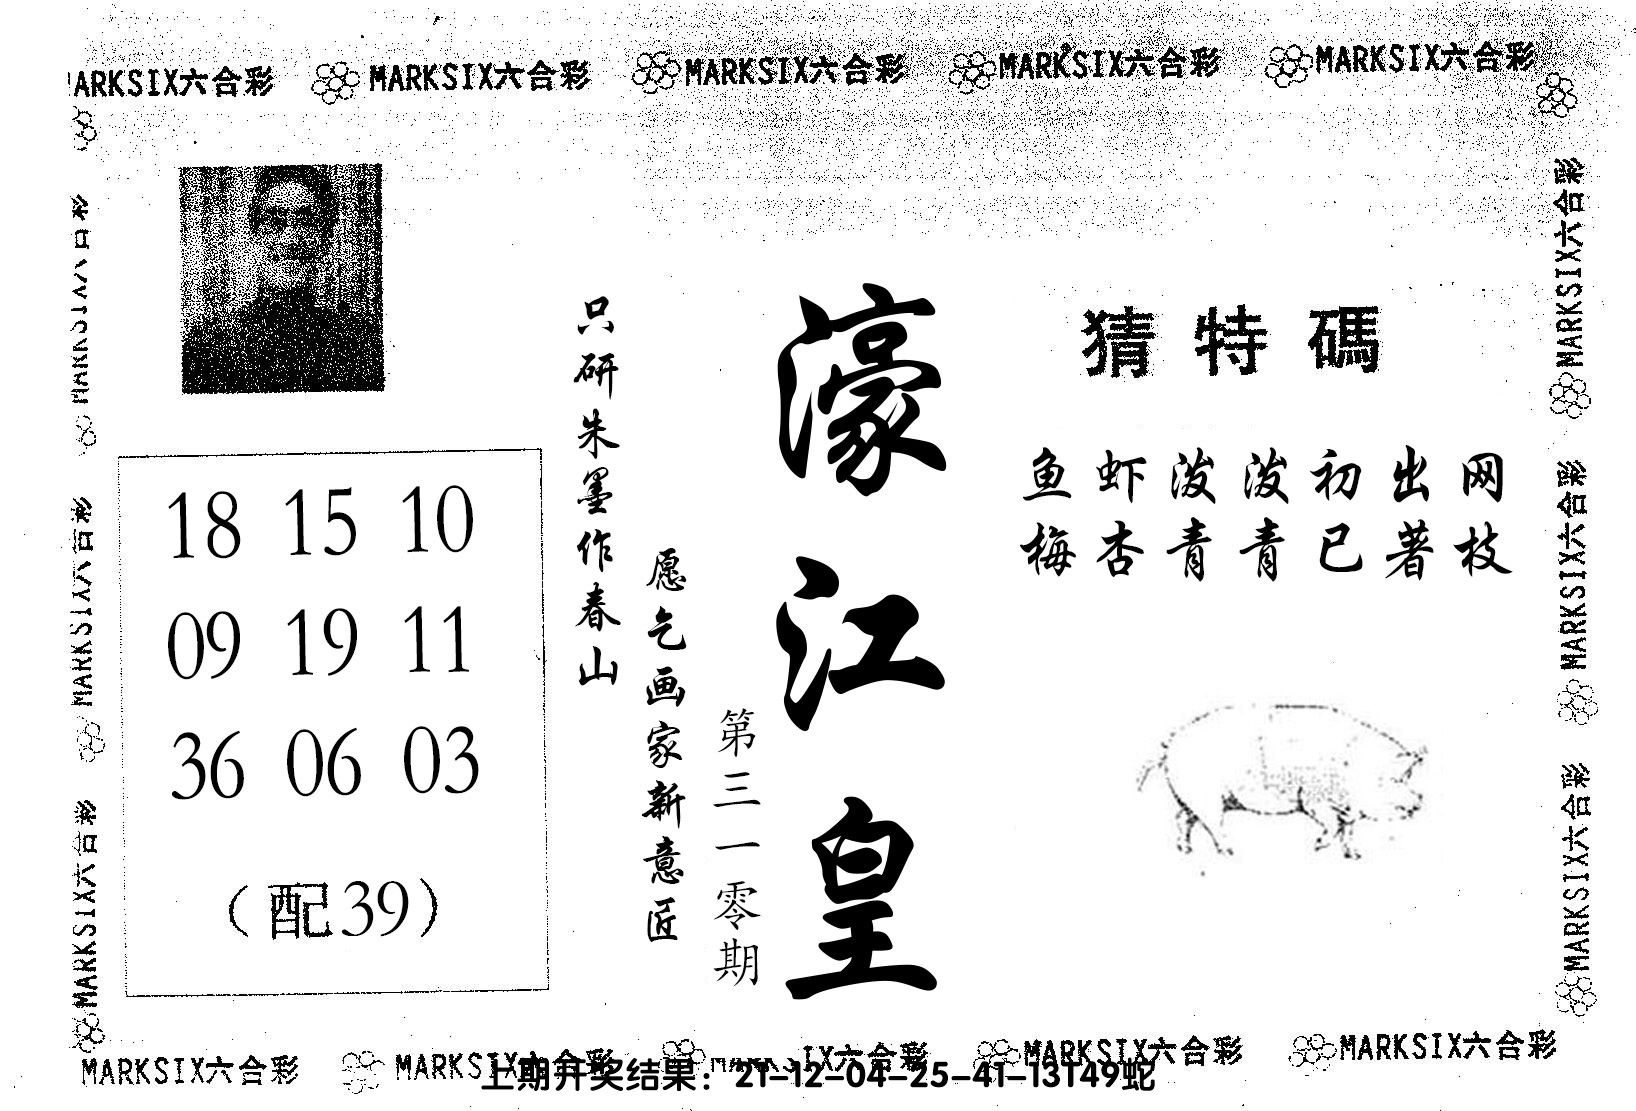 MARKSIX六合彩 MARKSIX六合彩 MARKSIX六合彩 MARKSIX六合彩 MARKSIX六合彩
猜特碼
鱼虾泼泼初出网
梅杏青青已著枝
濠江皇
第三一零期
愿乞画家新意匠
只研朱墨作春山
18 15 10
09 19 11
36 06 03
（配39）
MARKSIX六合彩
MARKSIX六合彩
MARKSIX六合彩
MARKSIX六合彩
MARKSIX六合彩
MARKSIX六合彩
MARKSIX六合彩 MARKSIX六合彩 MARKSIX六合彩 MARKSIX六合彩
上期开奖结果：21-12-04-25-41-13T49蛇